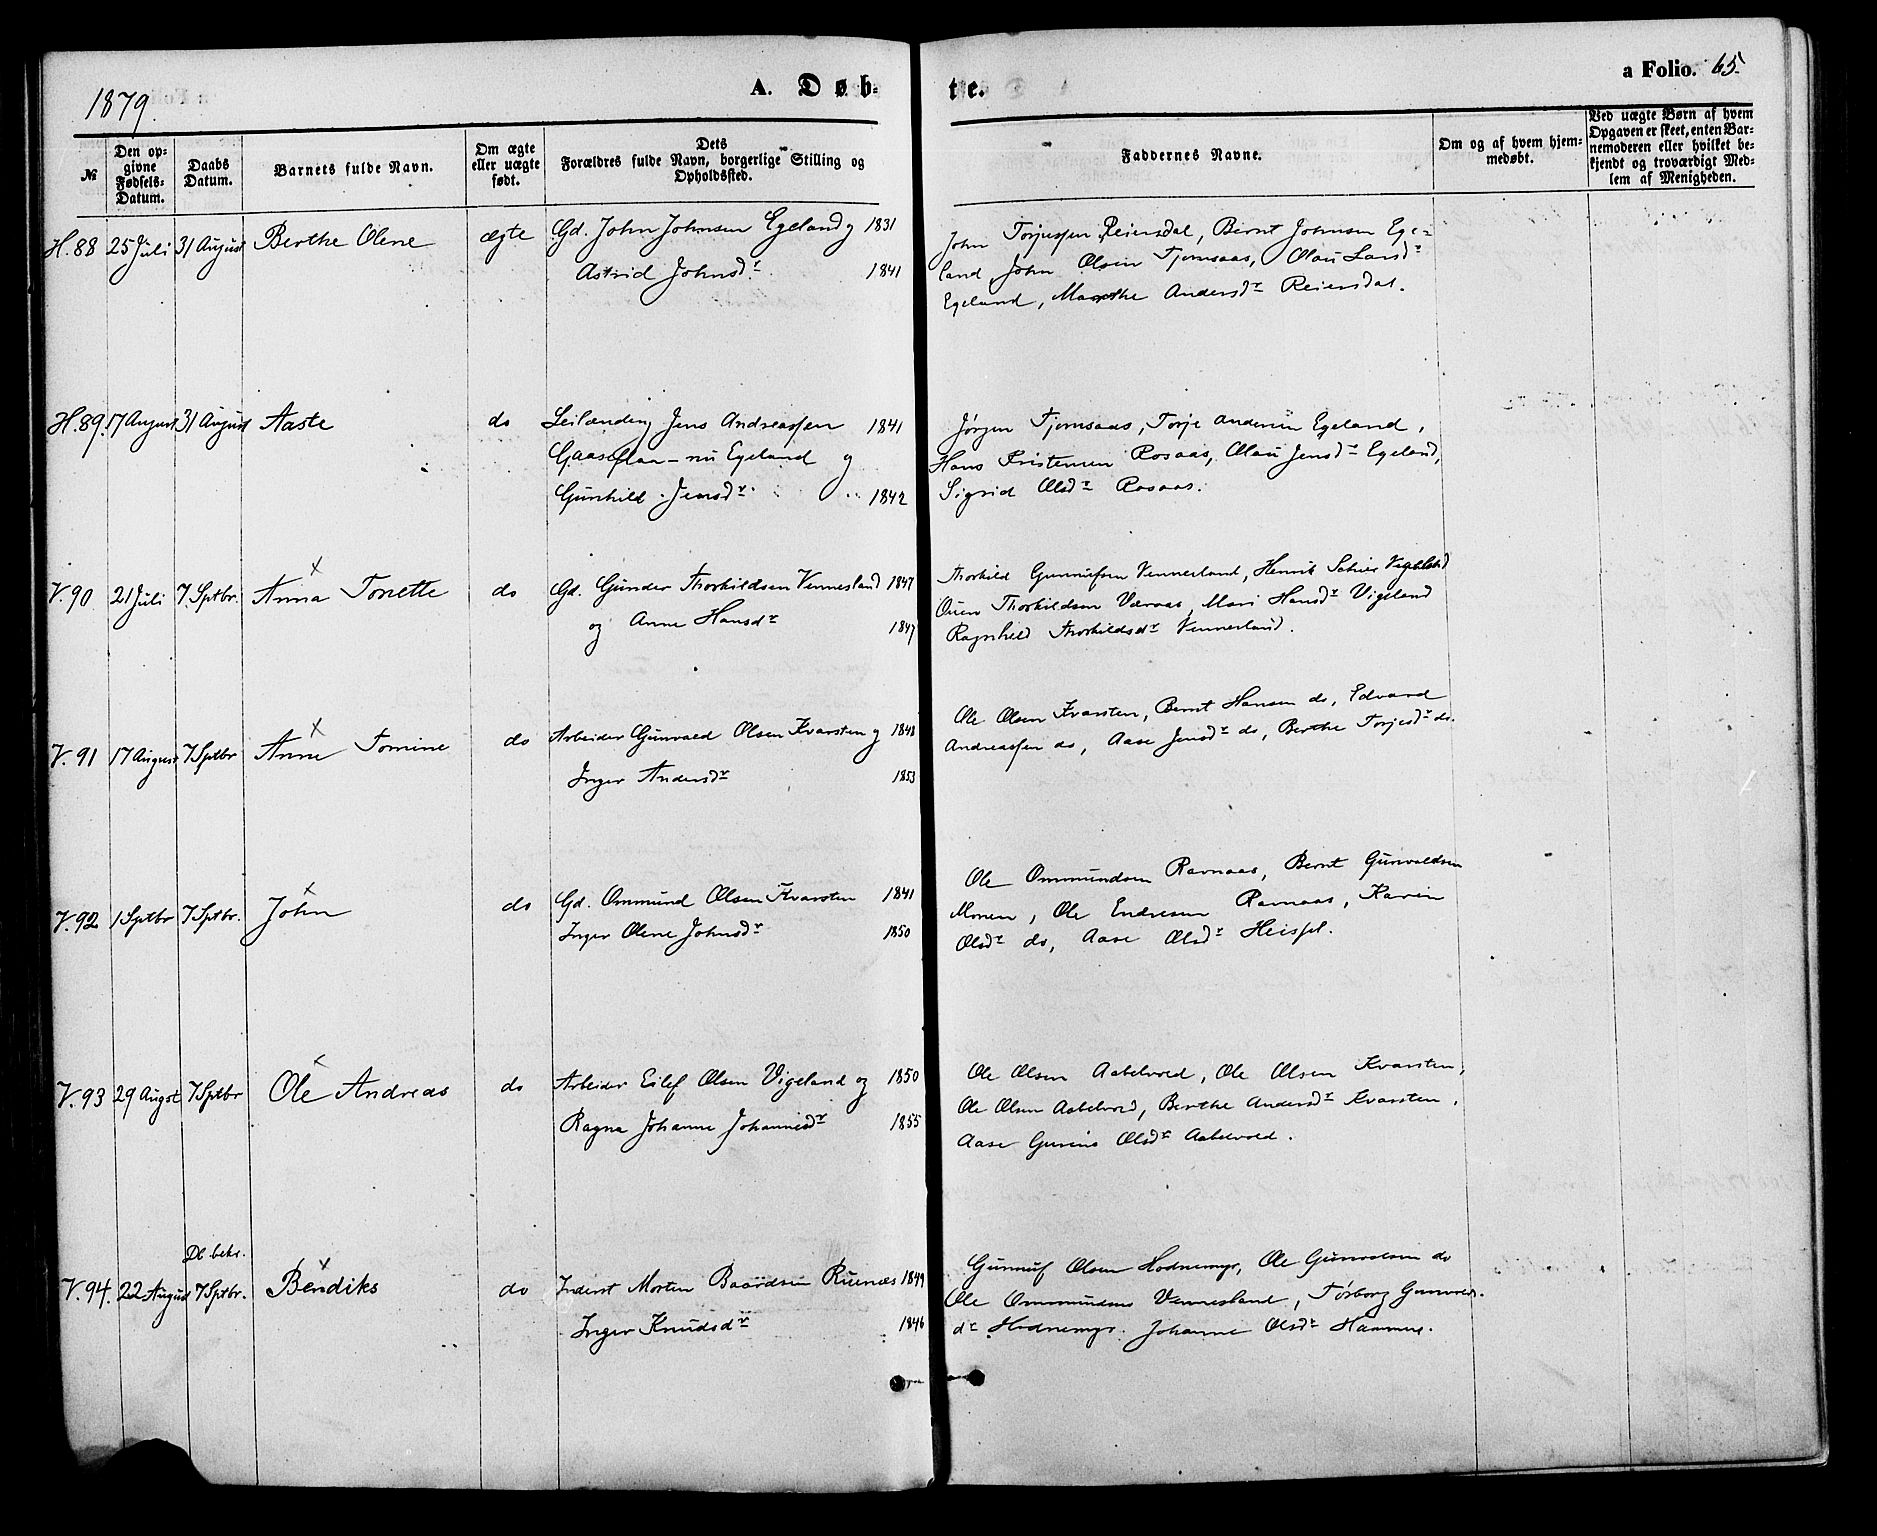 1879.
A. Døb-
te.
a Folio. 65.
№
Den op-
givne
Fødsels-
Datum.
Daabs
Datum.
Barnets fulde Navn.
Om ægte
eller uægte
født.
Dets
Forældres fulde Navn, borgerlige Stilling og
Opholdssted.
Faddernes Navne.
Om og af hvem hjem-
medøbt.
Ved uægte Børn af hvem
Opgaven er skeet, enten Bar-
nemoderen eller hvilket be-
kjendt og troværdigt Med-
lem af Menigheden.
H. 88 25 Juli 31 August Berthe Olene ægte Gd. John Johnsen Egeland og 1831
Astrid Johnsdr. 1841
John Torjussen Reiersdal, Bernt Johnsen Ege-
land, John Olsen Tjomsaas, Olau Larsdr
Egeland, Marthe Andersdr Reiersdal.
H. 89. 17 August 31 August Aaste do Leilænding Jens Andreassen 1841
Gaaseflaa - nu Egeland og
Gunhild Jensdr 1842
Jørgen Tjomsaas, Torje Andersen Egeland,
Hans Kristensen Rosaas, Olau Jensdr Egeland,
Sigrid Olsdr Rosaas.
V. 90 21 Juli 7. Sptbr. Anna Tonette do Gd. Gunder Thorkildsen Vennesland 1847
og Anne Hansdr 1847
Thorkild Gunnufsen Vennesland, Henrik Vigeland
Ouen Thorkildsen Væraas, Mari Hansdr Vigeland
Ragnhild Thorkildsdr Vennesland.
V. 91 17 August 7 Sptbr Anne Tomine do Arbeider Gunvald Olsen Kvarsten og 1848
Inger Andersdr 1853
Ole Olsen Kvarsten, Bernt Hansen do, Edvard
Andreassen do, Aase Jensdr do, Berthe Torjesdr do.
V. 92 1 Sptbr 7 Sptbr. John do Gd. Ommund Olsen Kvarsten 1841
Inger Olene Johnsdr 1850
Ole Ommundsen Ravnaas, Bernt Gunvaldsen
Monen, Ole Endresen Ravnaas, Karen
Olsdr do, Aase Olsdr Heisel.
V. 93 29 Augst 7 Sptbr Ole Andreas do Arbeider Eilef Olsen Vigeland og 1850
Ragna Johanne Johannesdr 1855
Ole Olsen Aabelvold, Ole Olsen Kvarsten,
Ole Olsen Aabelvold, Berthe Andersdr Kvarsten,
Aase Gurine Olsdr Aabelvold.
Db. bekr.
V. 94. 22 August 7 Sptbr. Bendiks do Inderst Morten Baardsen Ruenæs 1849
Inger Knudsdr 1846
Gunnuf Olsen Hodnemyr, Ole Gunvalsen do
Ole Ommundsen Vennesland, Torborg Gunvals-
dr Hodnemyr. Johanne Olsdr Hammen.